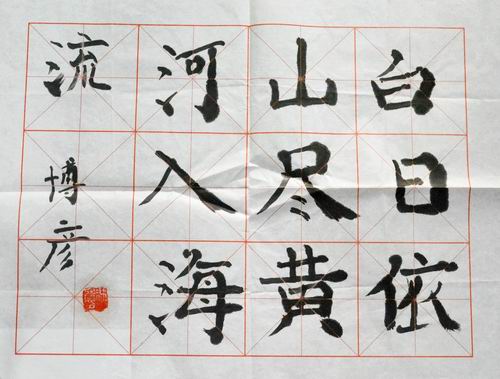 白日依
山尽黄
河入海
流
博彦